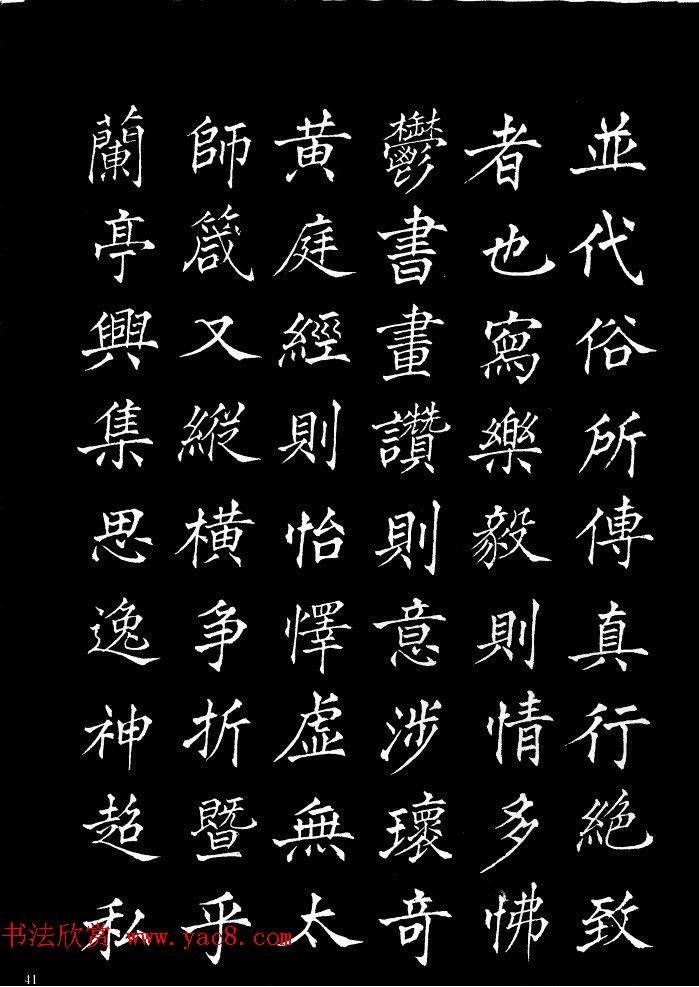 並代俗所傳真行絕致
者也寫樂毅則情多怫
鬱書畫讚則意涉瓌奇
黃庭經則怡懌虛無太
師箴又縱橫爭折暨乎
蘭亭興集思逸神超私
书法欣赏 www.yac8.com
41